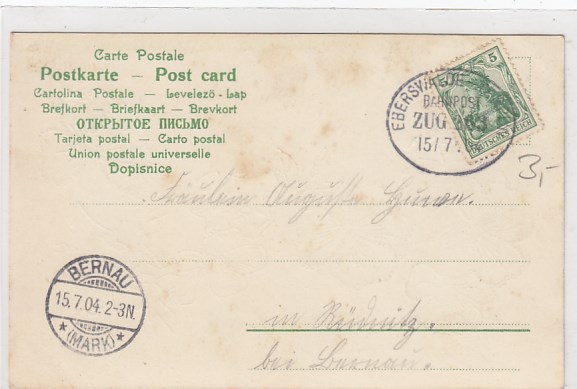 Carte Postale
Postkarte — Post card
Cartolina Postale — Levelező-Lap
Brefkort — Briefkaart — Brevkort
ОТКРЫТОЕ ПИСЬМО
Tarjeta postal — Carto postal
Union postale universelle
Dopisnice
EBERSWALDE
BAHNPOST
ZUG
15/7
5
DEUTSCHES REICH
3,-
Fräulein Auguste
in Rüdnitz,
bei Bernau.
BERNAU
15.7.04. 2-3N.
* (MARK) *